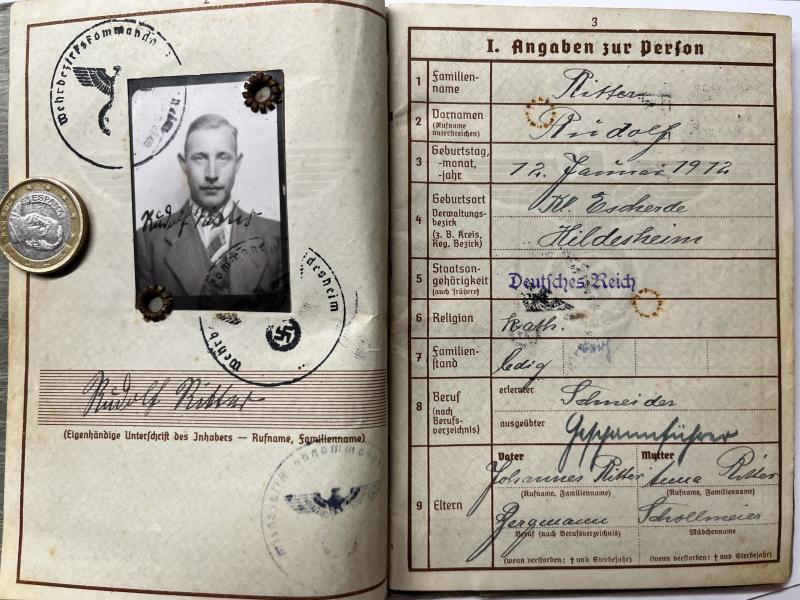 2
Wehrbezirkskommando
Rudolf Ritter
Hildesheim
Rudolf Ritter
(Eigenhändige Unterschrift des Inhabers — Rufname, Familienname)
ESPAÑA
3
I. Angaben zur Person
1 Familienname Ritter
2 Vornamen (Rufname unterstreichen) Rudolf
3 Geburtstag, -monat, -jahr 12. Januar 1912
4 Geburtsort Verwaltungsbezirk (z. B. Kreis, Reg. Bezirk) Kl. Escherde
Hildesheim
5 Staatsangehörigkeit (auch frühere) Deutsches Reich
6 Religion kath.
7 Familienstand ledig
8 Beruf (nach Berufsverzeichnis) erlernter Schneider
ausgeübter Gespannführer
9 Eltern Vater Mutter
Johannes Ritter Anna Ritter
(Rufname, Familienname) (Rufname, Familienname)
Bergmann Schollmeier
Beruf (nach Berufsverzeichnis) Mädchenname
(wenn verstorben: † und Sterbejahr) (wenn verstorben: † und Sterbejahr)